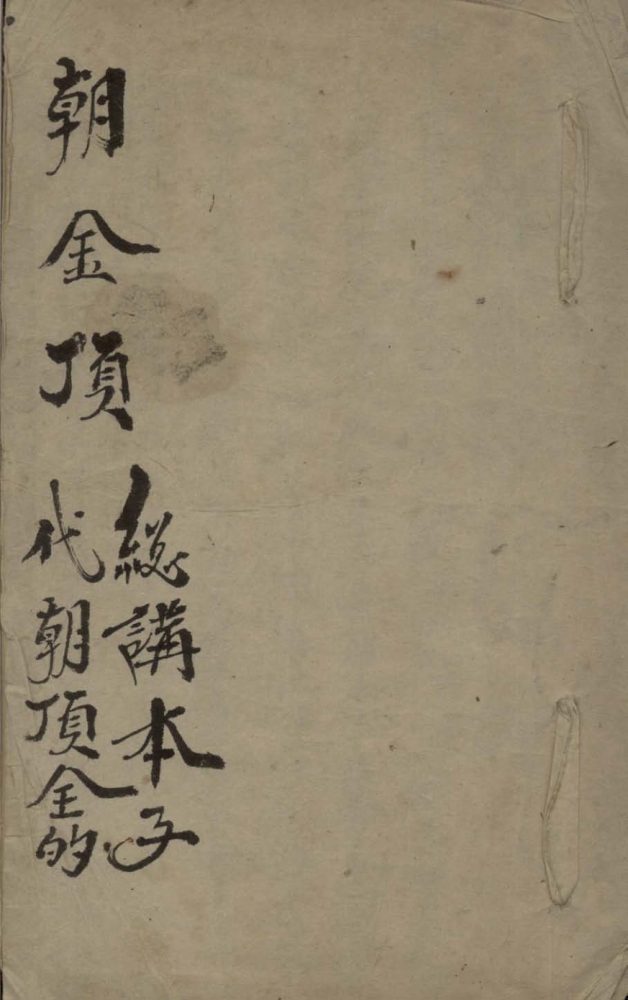 朝金頂
總講本子
代朝頂全的